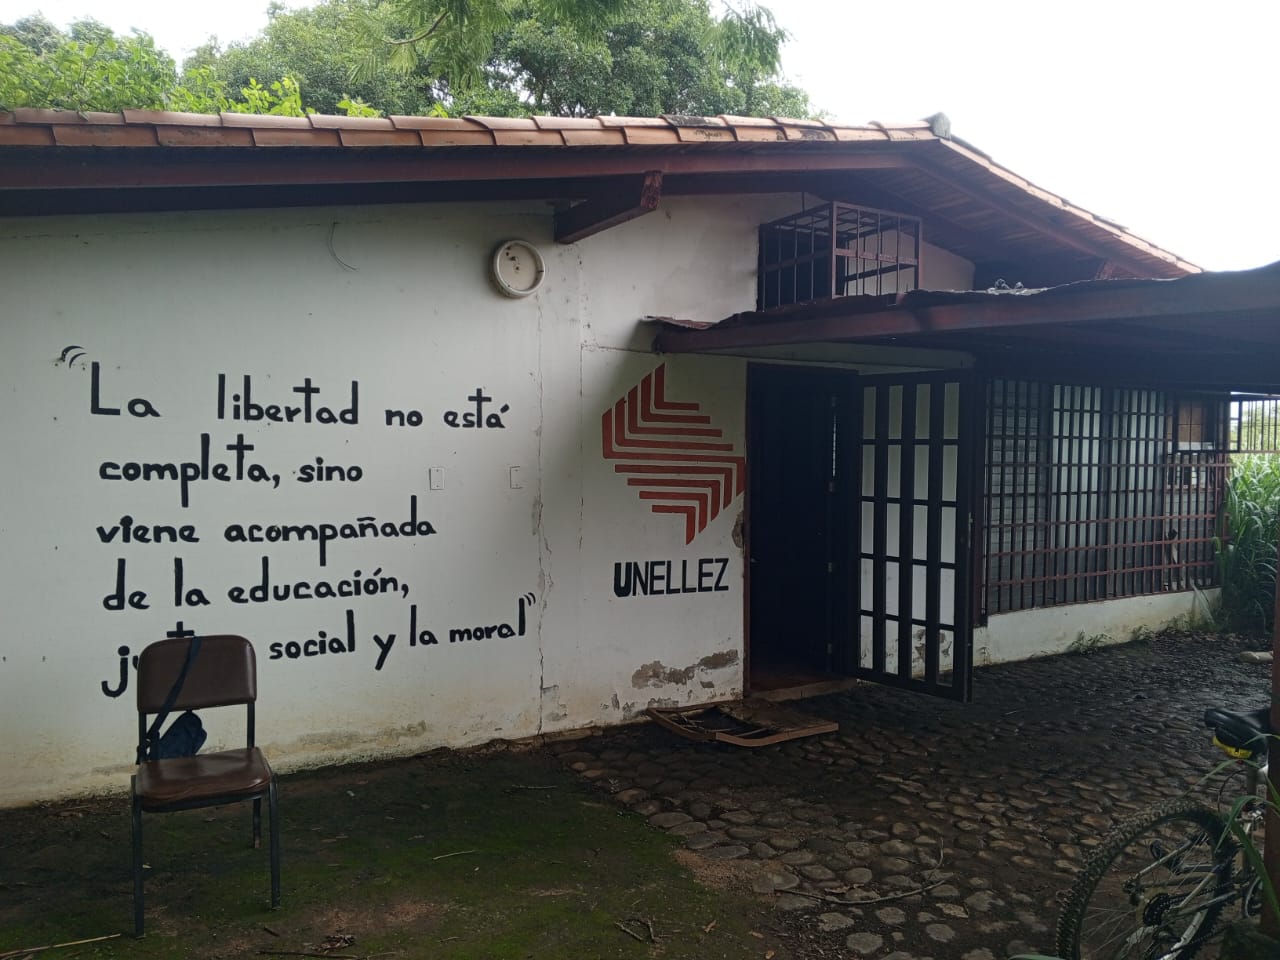 "La libertad no está
completa, sino
viene acompañada
de la educación,
social y la moral"
UNELLEZ